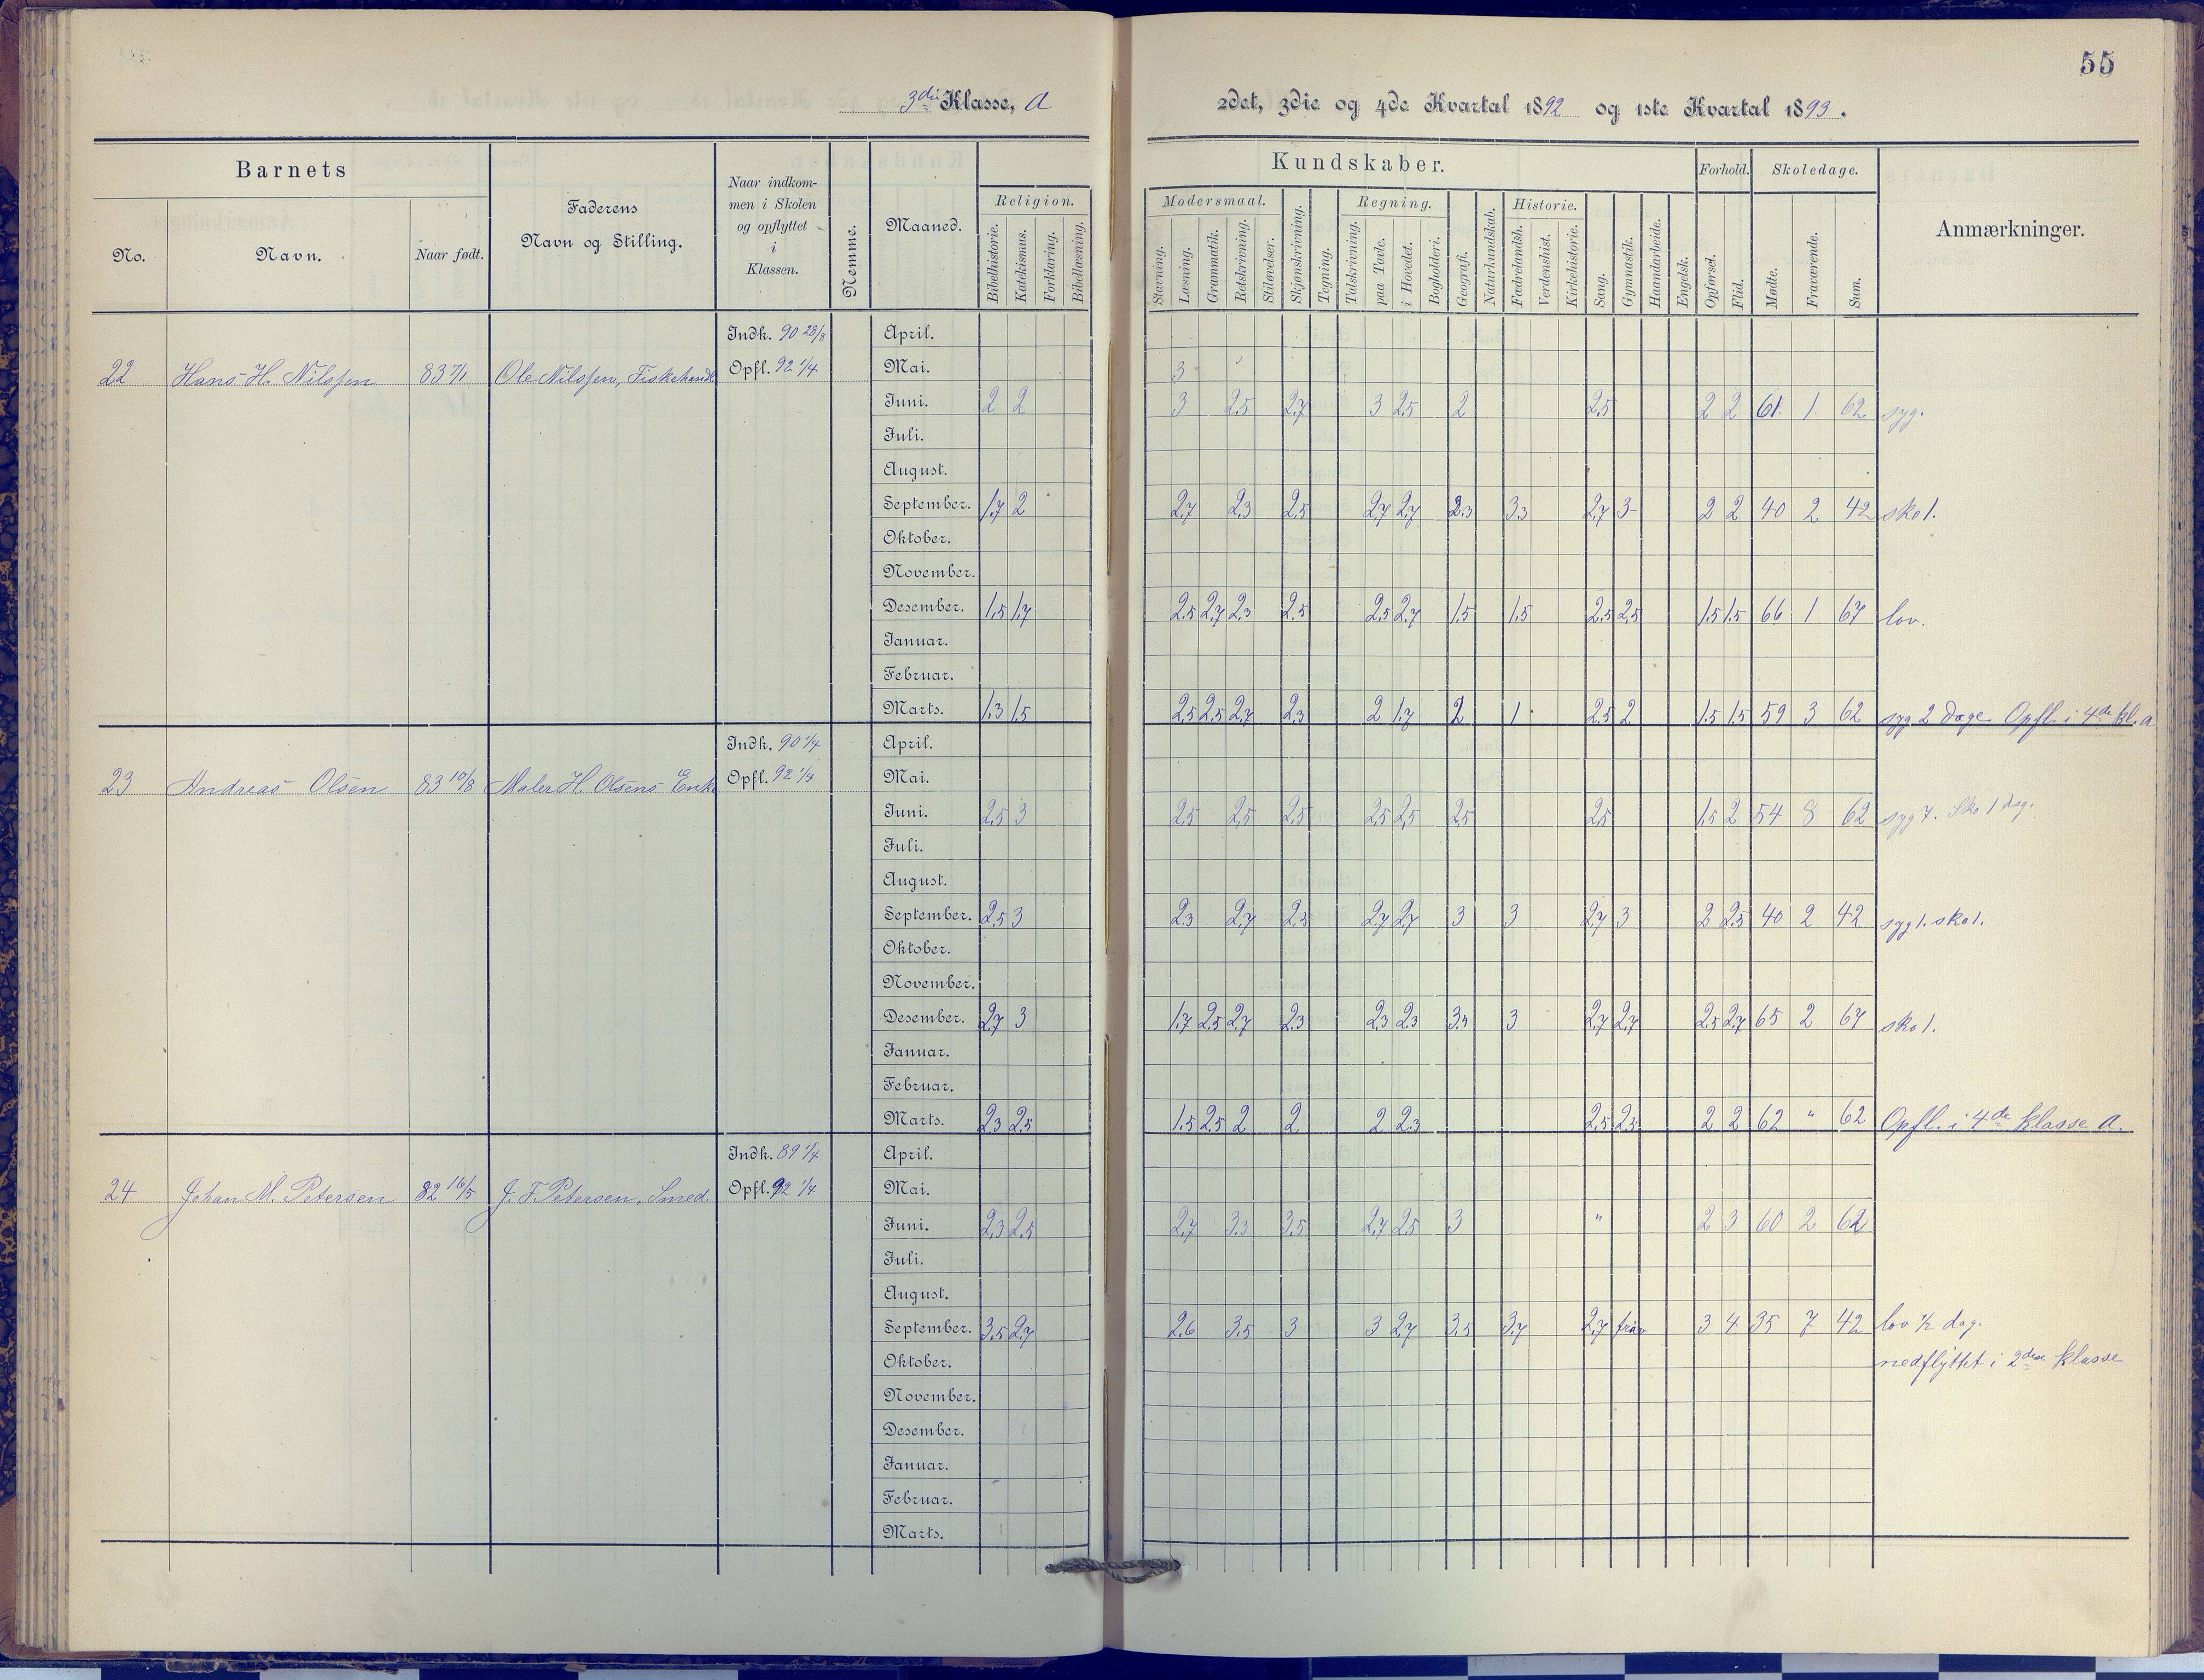 55
3die Klasse, A
2det, 3die og 4de Kvartal 1892 og 1ste Kvartal 1893.
Barnets
No.
Navn.
Naar født.
Faderens
Navn og Stilling.
Naar indkom-
men i Skolen
og opflyttet
i
Klassen.
Nemme.
Maaned.
Kundskaber.
Religion.
Bibelhistorie. Katekismus. Forklaring. Bibellæsning.
Modersmaal.
Stavning. Læsning. Grammatik. Retskrivning. Stiløvelser.
Skjønskrivning. Tegning.
Regning.
Talskrivning. paa Tavle. i Hovedet. Bogholderi.
Geografi. Naturkundskab.
Historie.
Fædrelandsh. Verdenshist. Kirkehistorie.
Sang. Gymnastik. Haandarbeide. Engelsk.
Forhold.
Opførsel. Flid.
Skoledage.
Mødte. Fraværende. Sum.
Anmærkninger.
22 Hans H. Nilssen 83 7/1 Ole Nilssen, Fiskehandl
Indk. 90 28/8
Opfl. 92 1/4
April.
Mai. 3
Juni. 2 2 3 2,5 2,7 3 2,5 2 2,5 2 2 61 1 62 syg.
Juli.
August.
September. 1,7 2 2,7 2,3 2,5 2,7 2,7 2,3 3,3 2,7 3 2 2 40 2 42 sko 1.
Oktober.
November.
Desember. 1,5 1,7 2,5 2,7 2,3 2,5 2,5 2,7 1,5 1,5 2,5 2,5 1,5 1,5 66 1 67 lov.
Januar.
Februar.
Marts. 1,3 1,5 2,5 2,5 2,7 2,3 2 1,7 2 1 2,5 2 1,5 1,5 59 3 62 syg 2 dage Opfl. i 4de kl. a
23 Andreas Olsen 83 10/8 Maler H. Olsens Enke
Indk. 90 1/4
Opfl. 92 1/4
April.
Mai.
Juni. 2,5 3 2,5 2,5 2,5 2,5 2,5 2,5 2,5 1,5 2 54 8 62 syg 7. Sko 1 dag.
Juli.
August.
September. 2,5 3 2,3 2,7 2,5 2,7 2,7 3 3 2,7 3 2 2,5 40 2 42 syg 1. sko 1.
Oktober.
November.
Desember. 2,7 3 1,7 2,5 2,7 2,3 2,3 2,3 3 2,7 2,7 2,5 2,7 65 2 67 sko 1.
Januar.
Februar.
Marts. 2,3 2,5 1,5 2,5 2 2 2 2,3 2,5 2 2 62 " 62 Opfl. i 4de klasse A.
24 Johan M. Petersen 82 16/5 J. F. Petersen, Smed.
Indk. 89 1/4
Opfl. 92 1/4
April.
Mai.
Juni. 2,3 2,5 2,7 3,3 3,5 2,7 2,5 3 " 2 3 60 2 62
Juli.
August.
September. 3,5 2,7 2,6 3,5 3 3 2,7 3,5 3,7 2,7 frav 3 4 35 7 42 lov 1/2 dag.
Oktober. nedflyttet i 2den klasse
November.
Desember.
Januar.
Februar.
Marts.